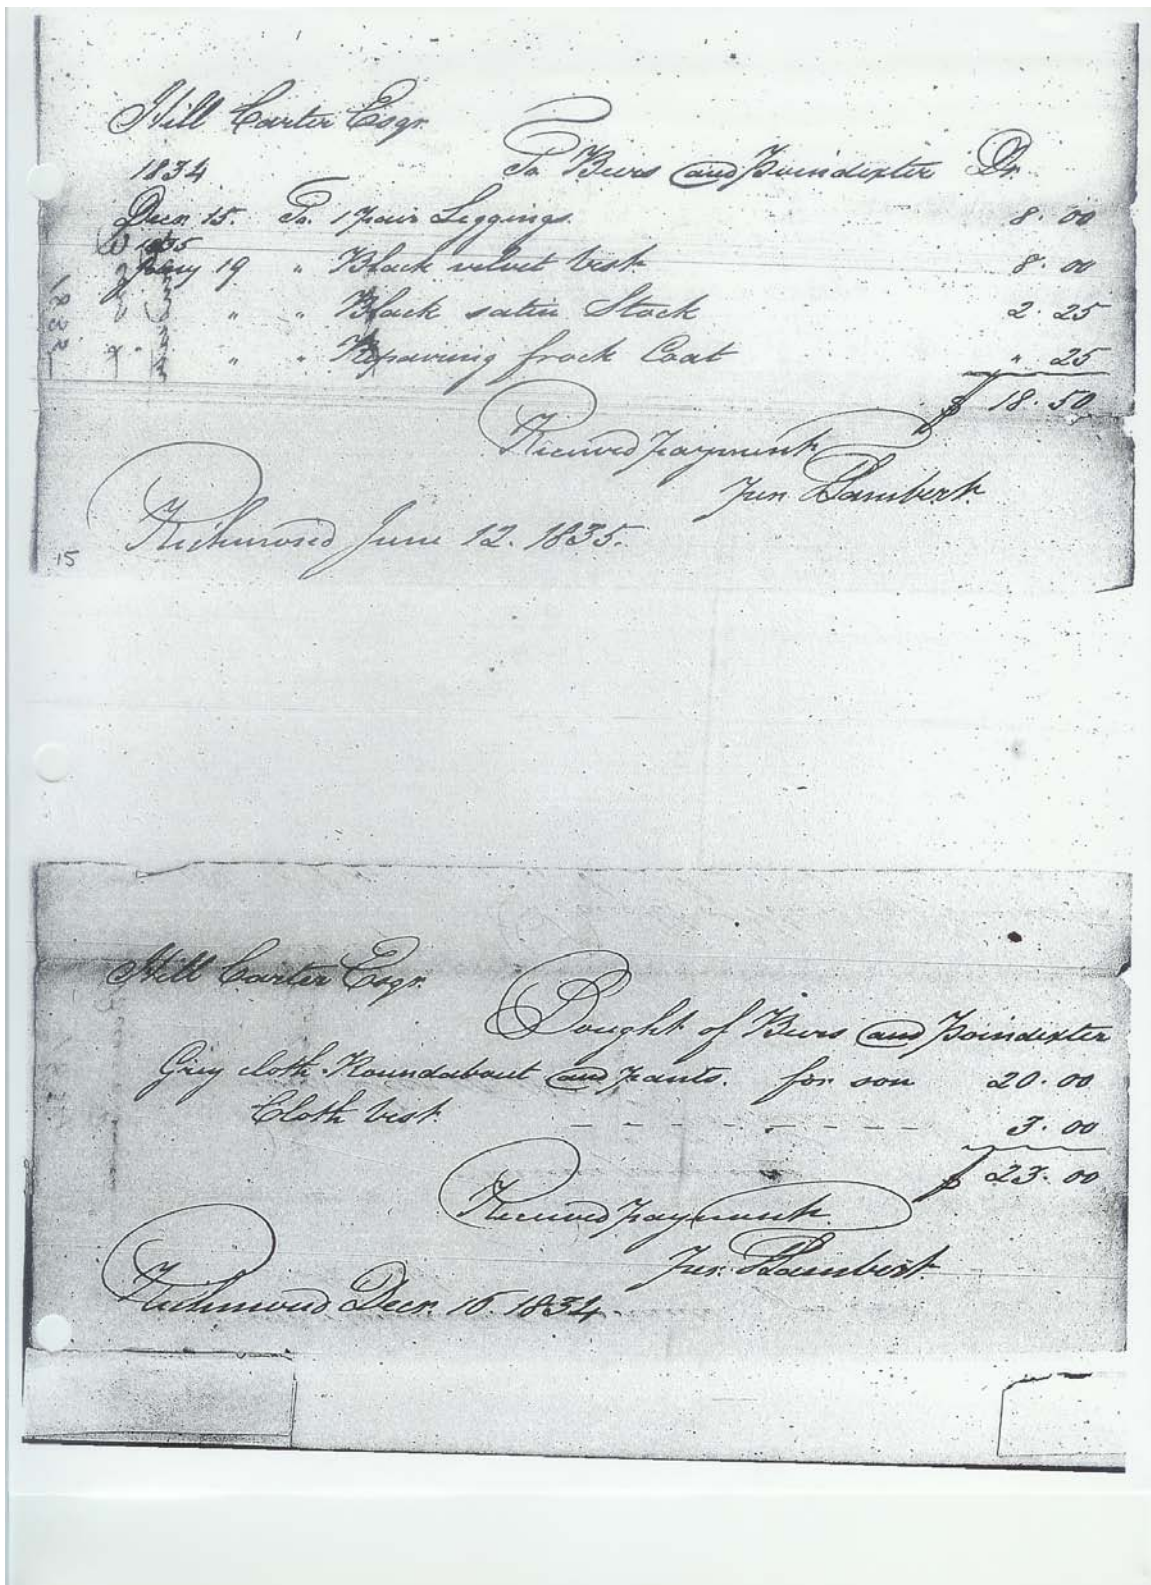 Hill Carter Esqr.
1834 To Beers and Poindexter Dr.
Decr. 15. To 1 pair Leggings. 8. 00
1835
Jany 19 " Black velvet Vest 8. 00
" " Black satin Stock 2. 25
" " Repairing frock Coat " 25
$ 18. 50
Received payment
Lambert.
Richmond June 12. 1835.
15
Hill Carter Esqr.
Bought of Beers and Poindexter
Grey cloth Roundabout and pants. for son 20. 00
Cloth Vest. " 3. 00
$ 23. 00
Received payment.
Lambert.
Richmond Decr. 16. 1834.